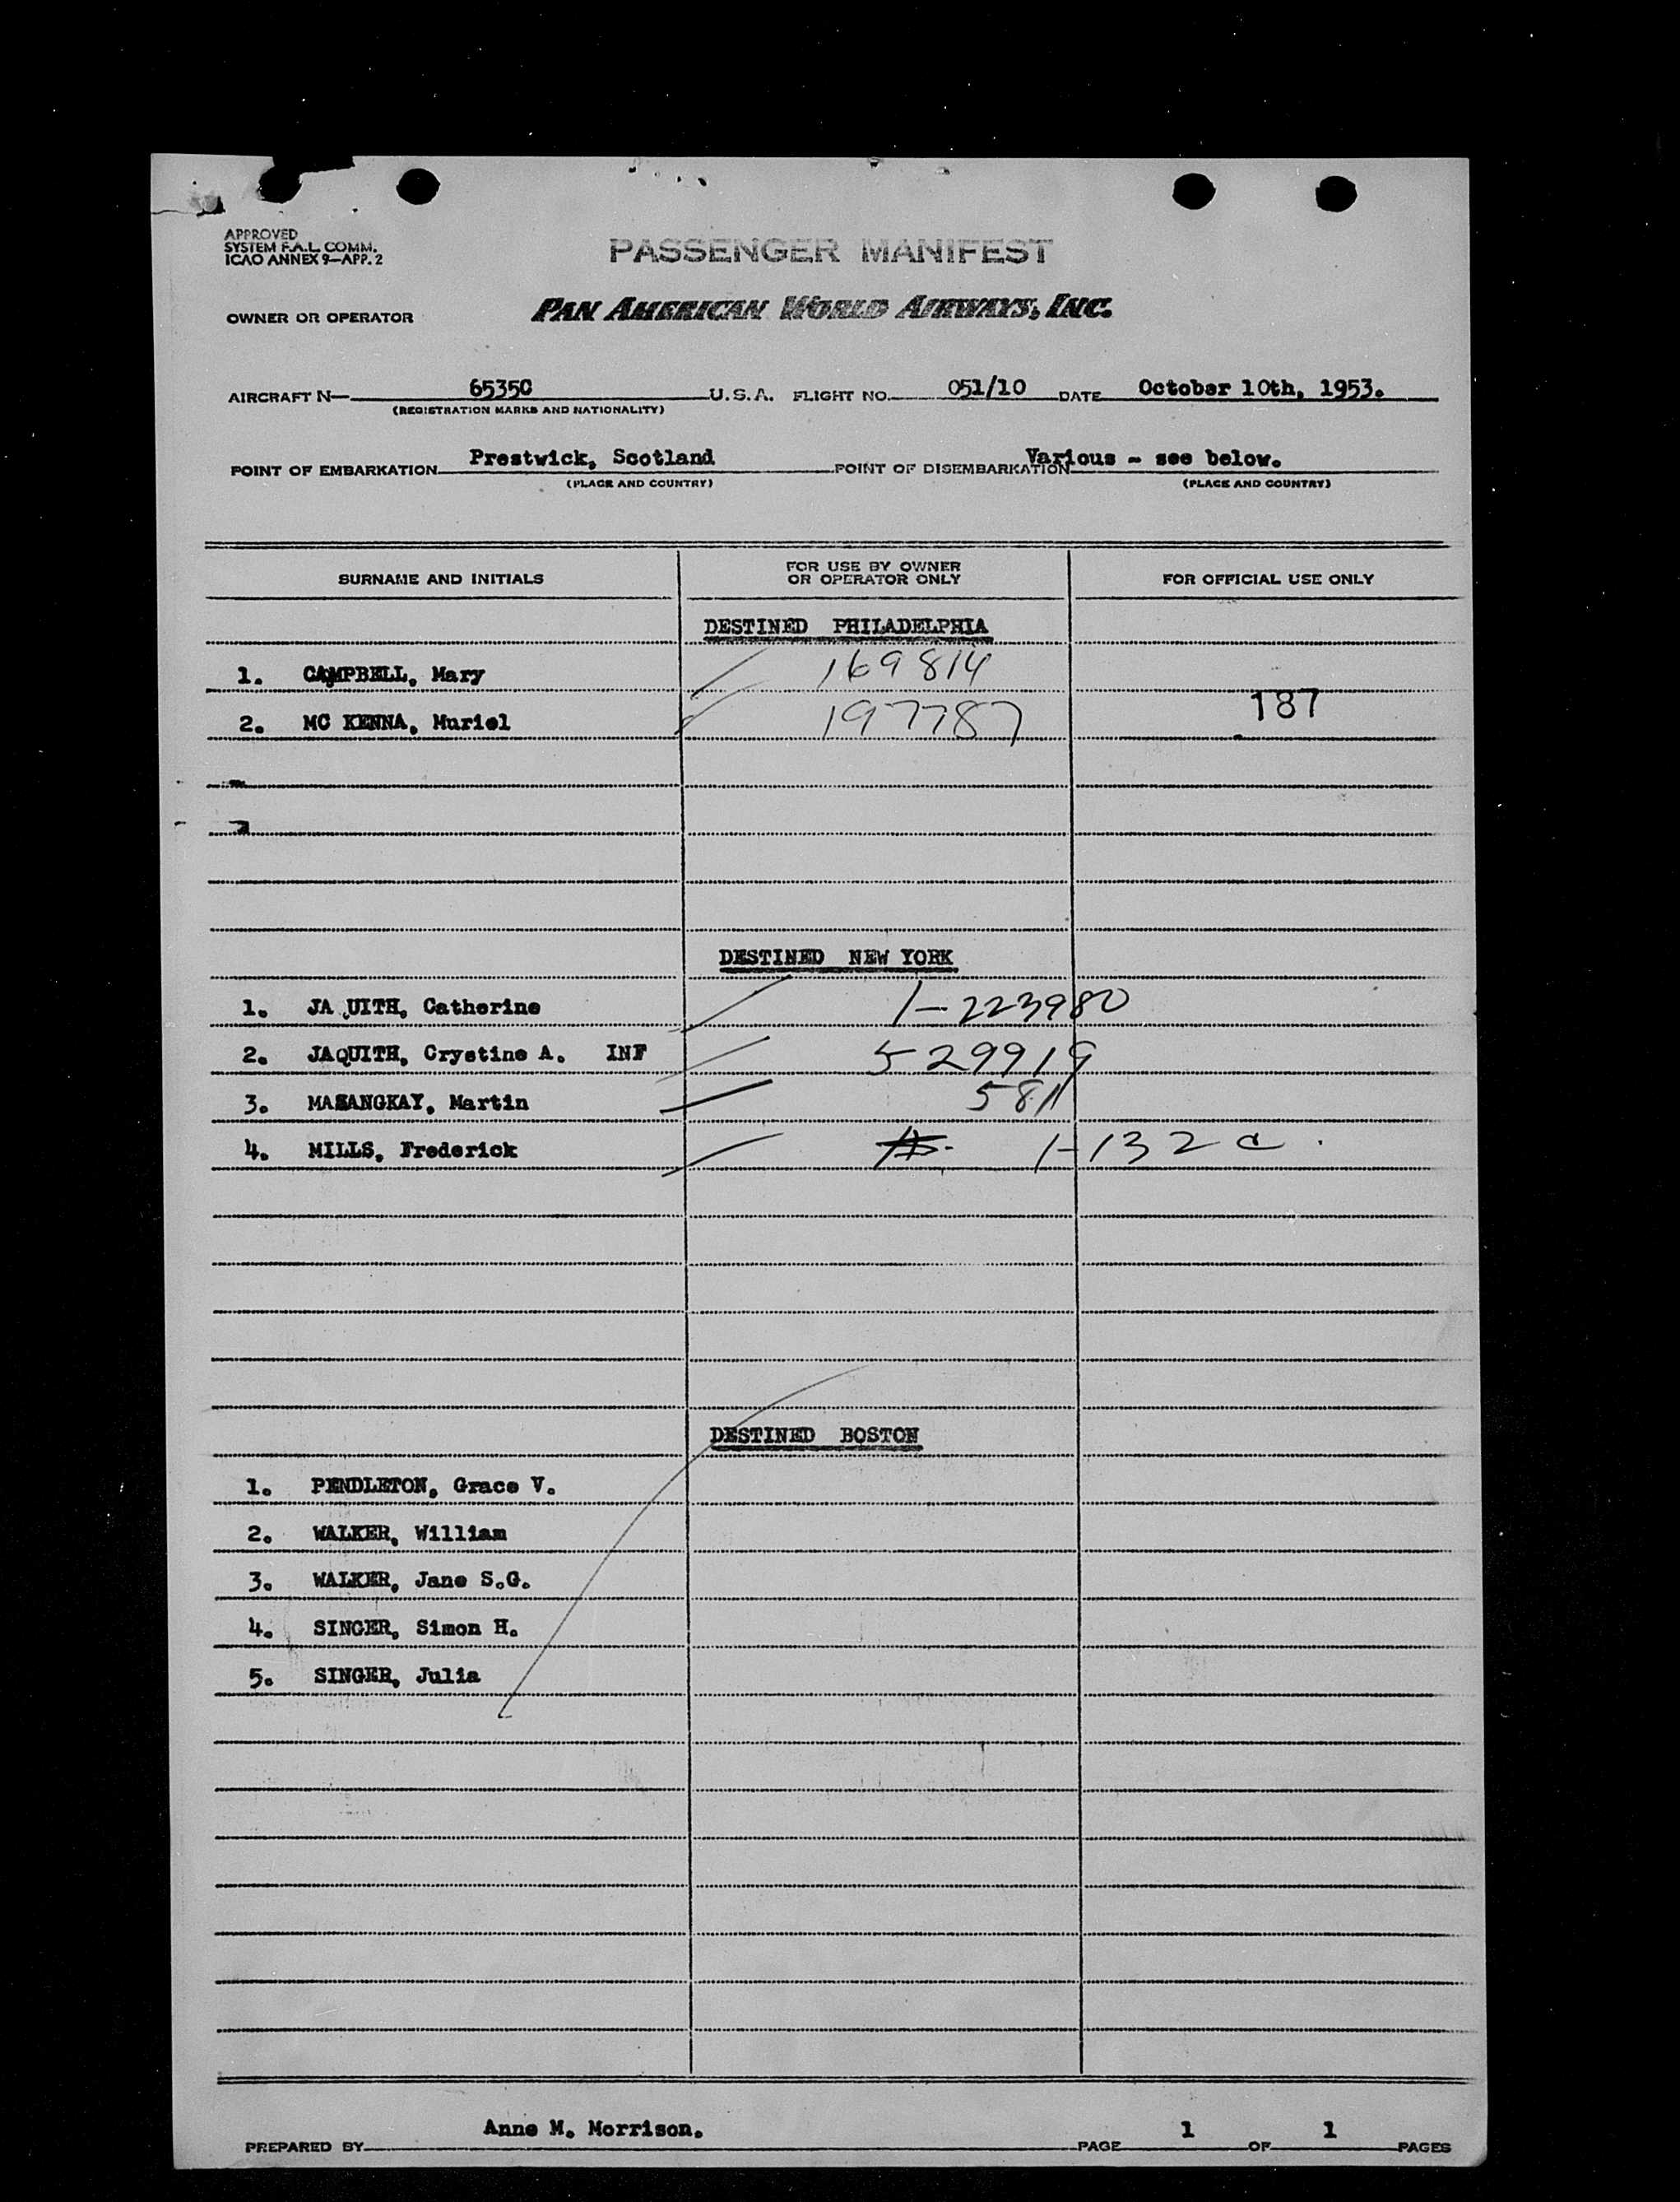 APPROVED
SYSTEM F.A.L. COMM.
ICAO ANNEX 9—APP. 2
PASSENGER MANIFEST
OWNER OR OPERATOR PAN AMERICAN WORLD AIRWAYS, INC.
AIRCRAFT N— 6535C U.S.A. FLIGHT NO. 051/10 DATE October 10th, 1953.
(REGISTRATION MARKS AND NATIONALITY)
POINT OF EMBARKATION Prestwick, Scotland POINT OF DISEMBARKATION Various - see below.
(PLACE AND COUNTRY) (PLACE AND COUNTRY)
SURNAME AND INITIALS FOR USE BY OWNER OR OPERATOR ONLY FOR OFFICIAL USE ONLY
DESTINED PHILADELPHIA
1. CAMPBELL, Mary 169814
2. MC KENNA, Muriel 197787 187
DESTINED NEW YORK
1. JA UITH, Catherine 1-223980
2. JAQUITH, Crystine A. INF 529919
3. MASANGKAY, Martin 5811
4. MILLS, Frederick 1-132 a.
DESTINED BOSTON
1. PENDLETON, Grace V.
2. WALKER, William
3. WALKER, Jane S.G.
4. SINGER, Simon H.
5. SINGER, Julia
PREPARED BY Anne M. Morrison. PAGE 1 OF 1 PAGES